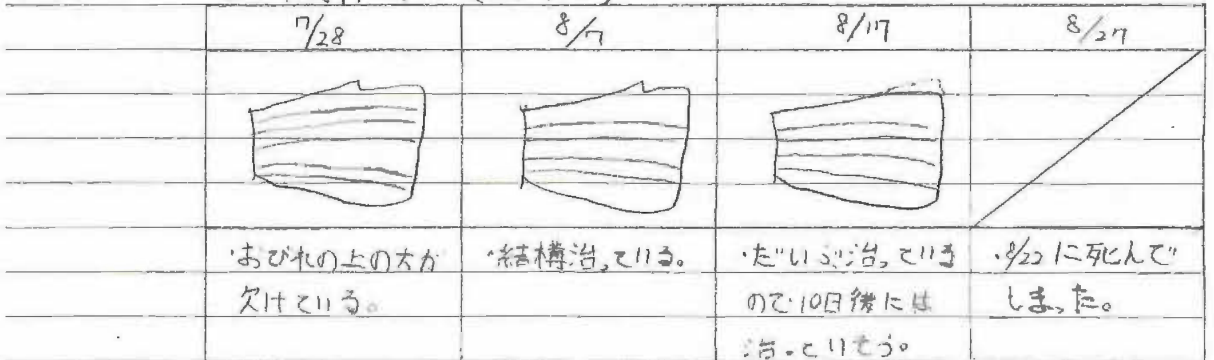 7/28
8/7
8/17
8/27
・おびれの上の方が
欠けている。
・結構治っている。
・だいぶ治っている
ので10日後には
治っていそう。
・8/22に死んで
しまった。